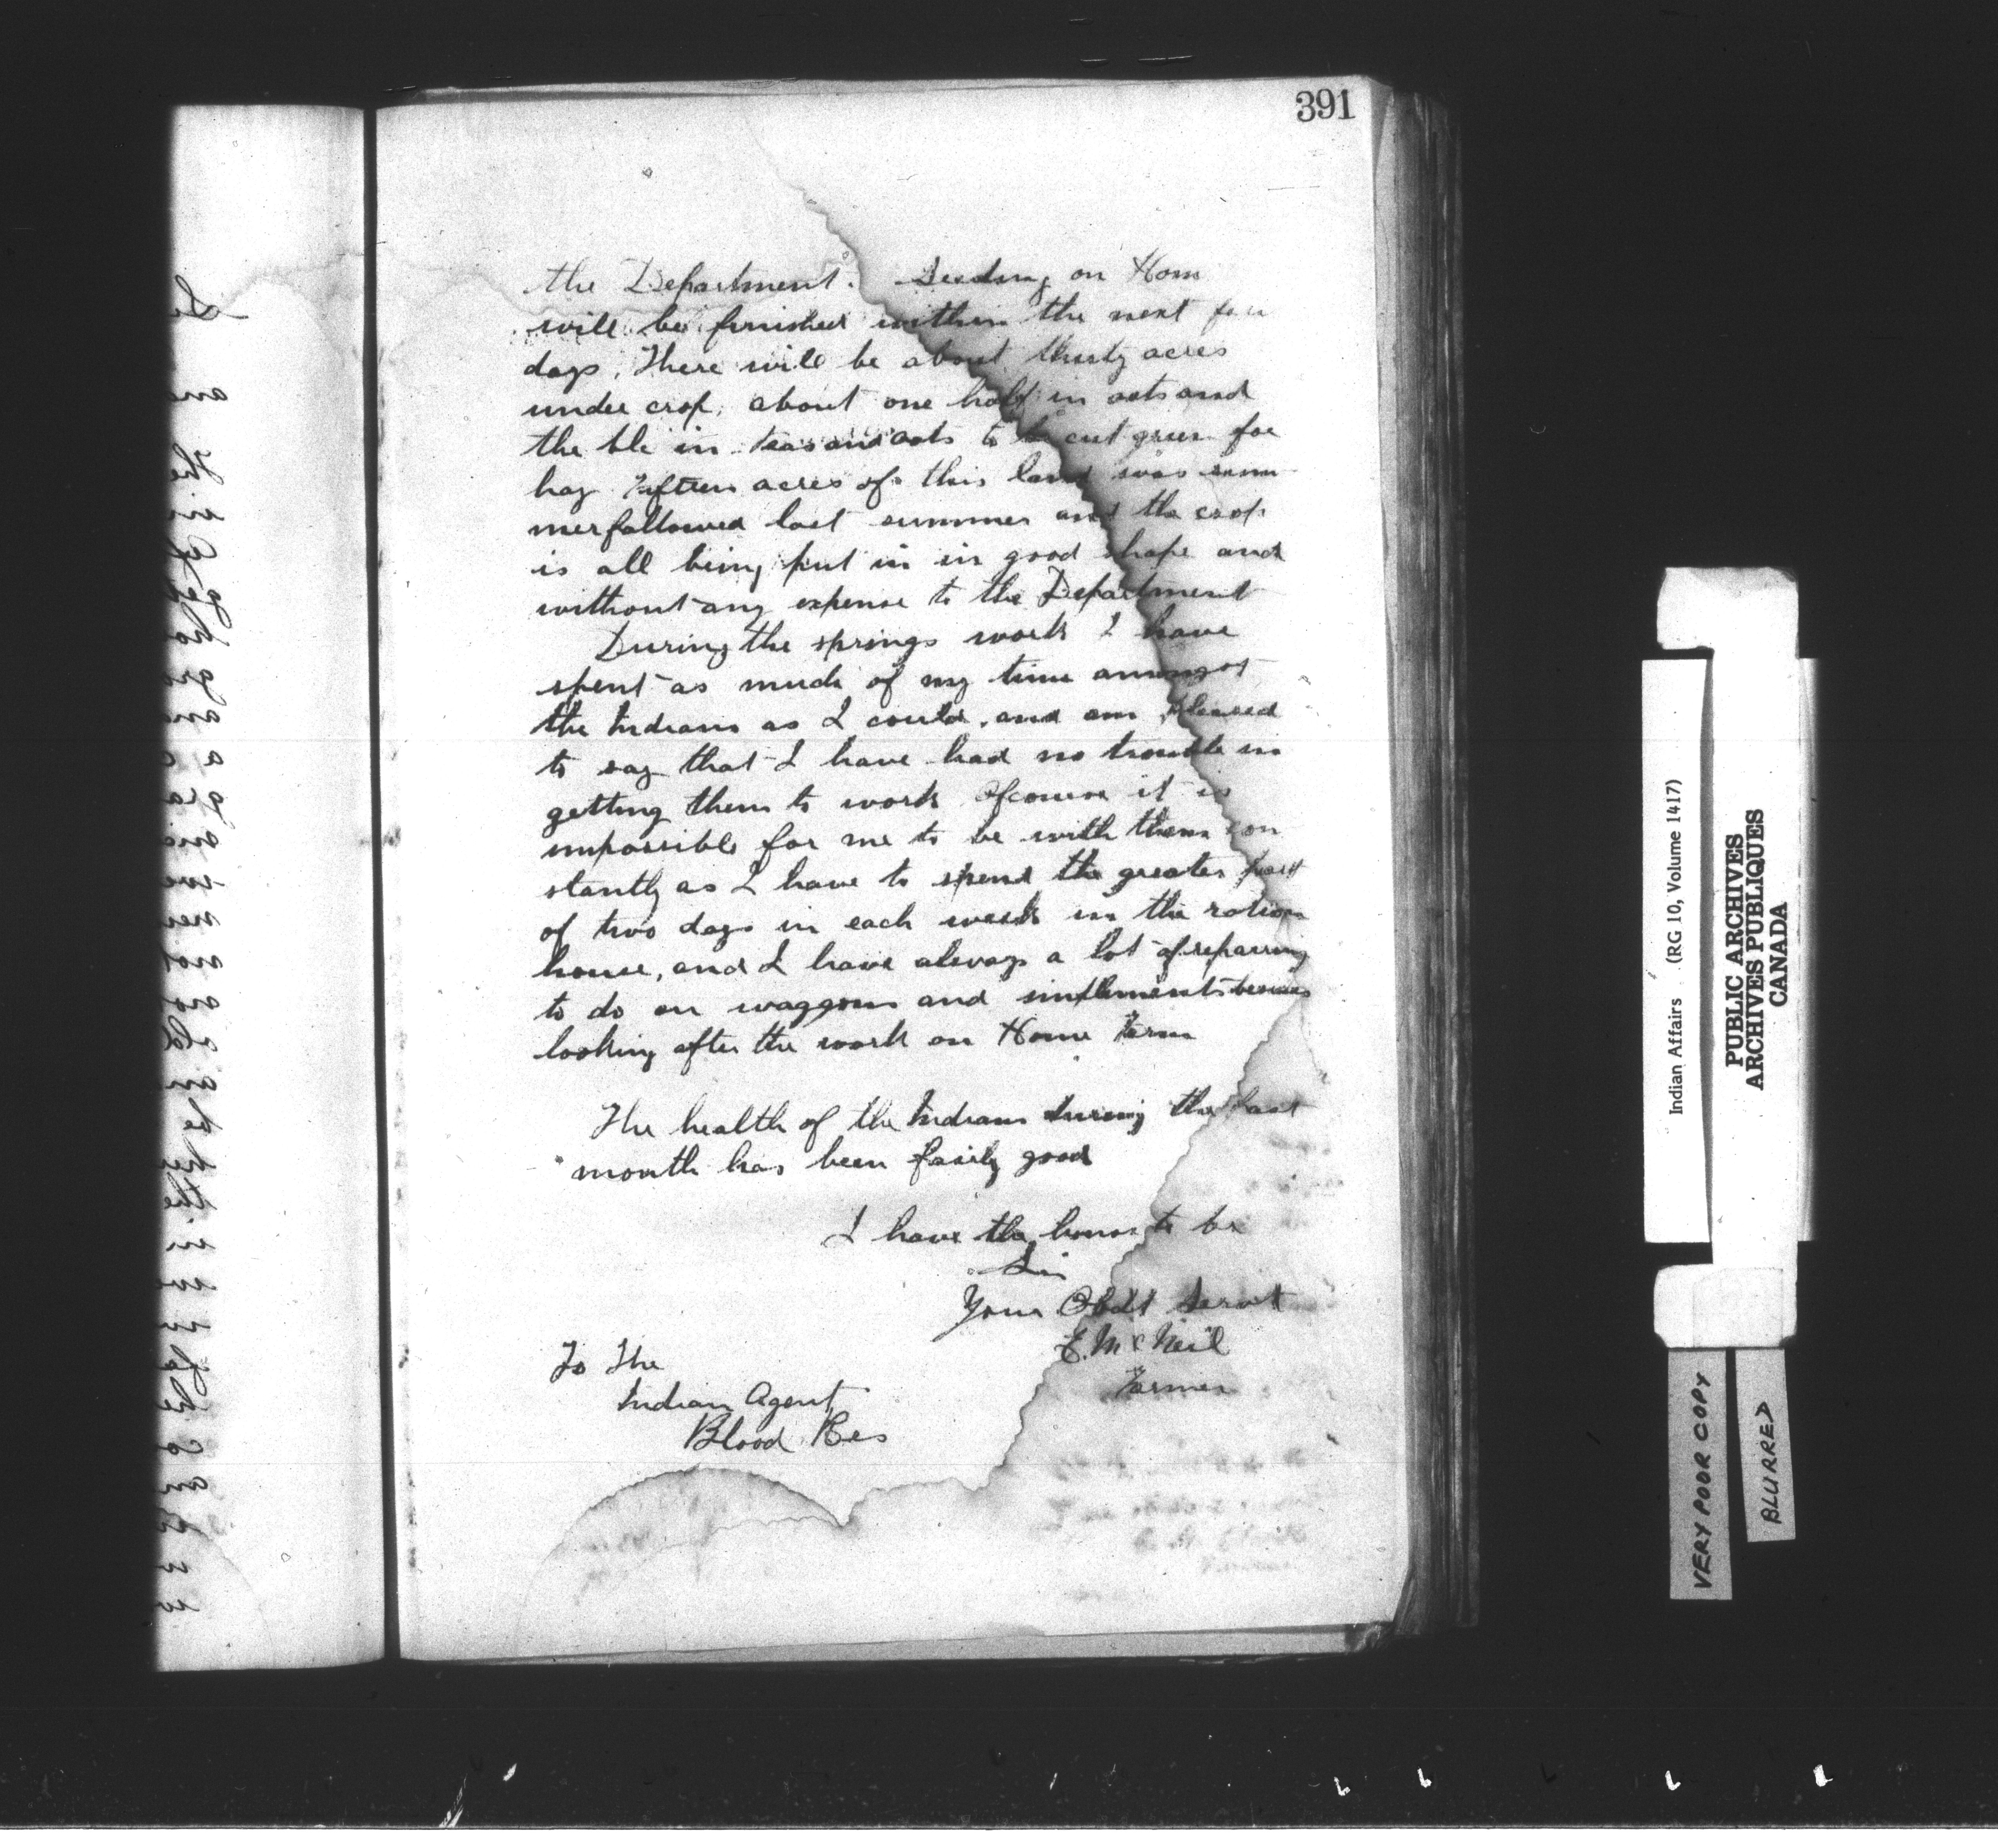 391
the Department. Seeding on Hom
will be finished within the next few
days. There will be about thirty acres
under crop, about one half in oats and
the ble in Peas and oats to be cut green for
hay Fifteen acres of this land was sum
merfallowed last summer and the crop
is all being put in in good shape and
without any expense to the Department
During the springs work I have
spent as much of my time amongst
the Indians as I could, and am pleased
to say that I have had no trouble in
getting them to work Ofcourse it is
impossible for me to be with them con
stantly as I have to spend the greater part
of two days in each week in the ration
house, and I have always a lot of repairing
to do on waggons and impliments besides
looking after the work on Home Farm
The health of the Indians during the past
month has been fairly good
I have the honor to be
Sir
Your Obdt Servt
E. McNeil
Farmer
To The
Indian Agent
Blood Res
Indian Affairs (RG 10, Volume 1417)
PUBLIC ARCHIVES
ARCHIVES PUBLIQUES
CANADA
VERY POOR COPY
BLURRED